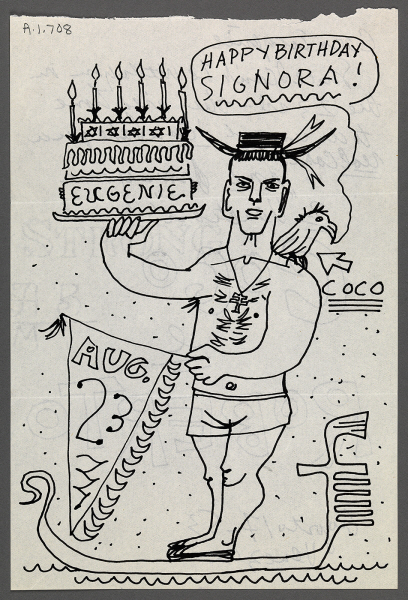 A.1.708
HAPPY BIRTHDAY
SIGNORA!
EUGENIE
COCO
AUG.
23